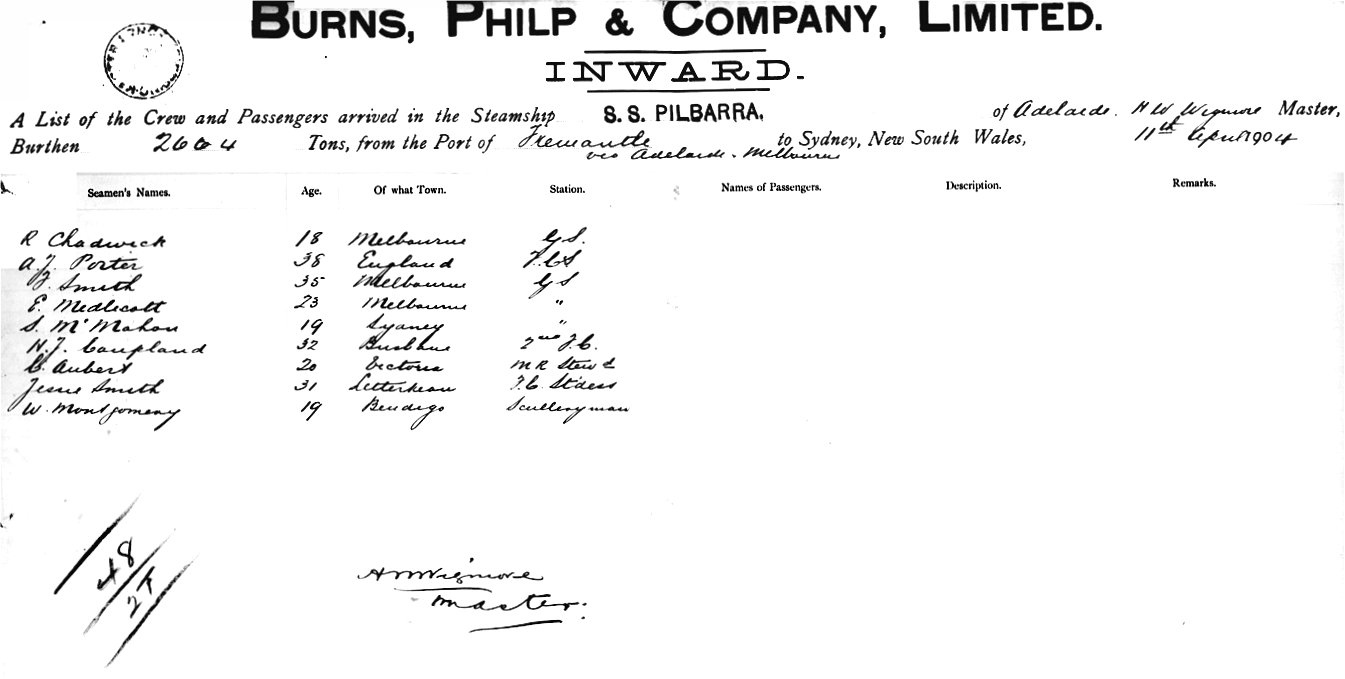 BURNS, PHILP & COMPANY, LIMITED.
INWARD.
A List of the Crew and Passengers arrived in the Steamship S. S. PILBARRA, of Adelaide. H W Wigmore Master,
Burthen 2664 Tons, from the Port of Fremantle to Sydney, New South Wales, 11th April 1904
via Adelaide. Melbourne
Seamen's Names. Age. Of what Town. Station. Names of Passengers. Description. Remarks.
R Chadwick 18 Melbourne G S.
A.J. Porter 38 England F.C.S
F. Smith 35 Melbourne G S
E. Medlecott 23 Melbourne "
S. McMahon 19 Sydney "
H.J. Coupland 32 Brisbane 2nd J.C.
C. Aubert 20 Victoria M R Stewd
Jessie Smith 31 Letterkean F.C. Stdess
W. Montgomery 19 Bendigo Sculleryman
48
27
H W Wigmore
Master.